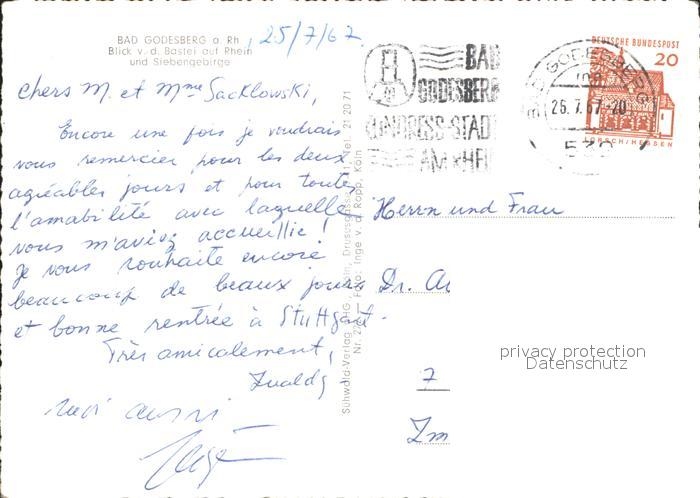 BAD GODESBERG a. Rh.
Blick v. d. Bastei auf Rhein
und Siebengebirge
25/7/67
Chers M. et Mme Sacklowski,
Encore une fois je voudrais
vous remercier pour les deux
agréables jours et pour toute
l'amabilité avec laquelle
vous m'aviez accueillie !
Je vous souhaite encore
beaucoup de beaux jours
et bonne rentrée à Stuttgart.
Très amicalement,
moi aussi
Sühwold-Verlag Köln, Tel. 21 20 71
Nr. Foto: Inge v. d. Ropp, Köln
BAD
GODESBERG
KONGRESS-STADT
AM RHEIN
BAD GODESBERG
26.7.67-20
DEUTSCHE BUNDESPOST
20
LORSCH/HESSEN
Herrn und Frau
Dr.
7
privacy protection
Datenschutz